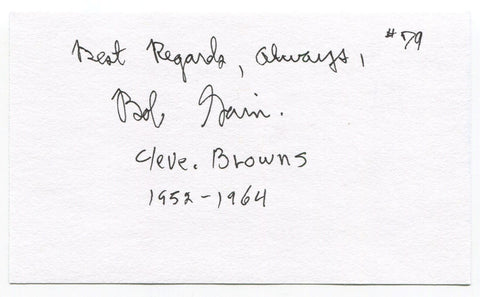 Best Regards, Always, #79
Bob Gain.
Cleve. Browns
1952-1964